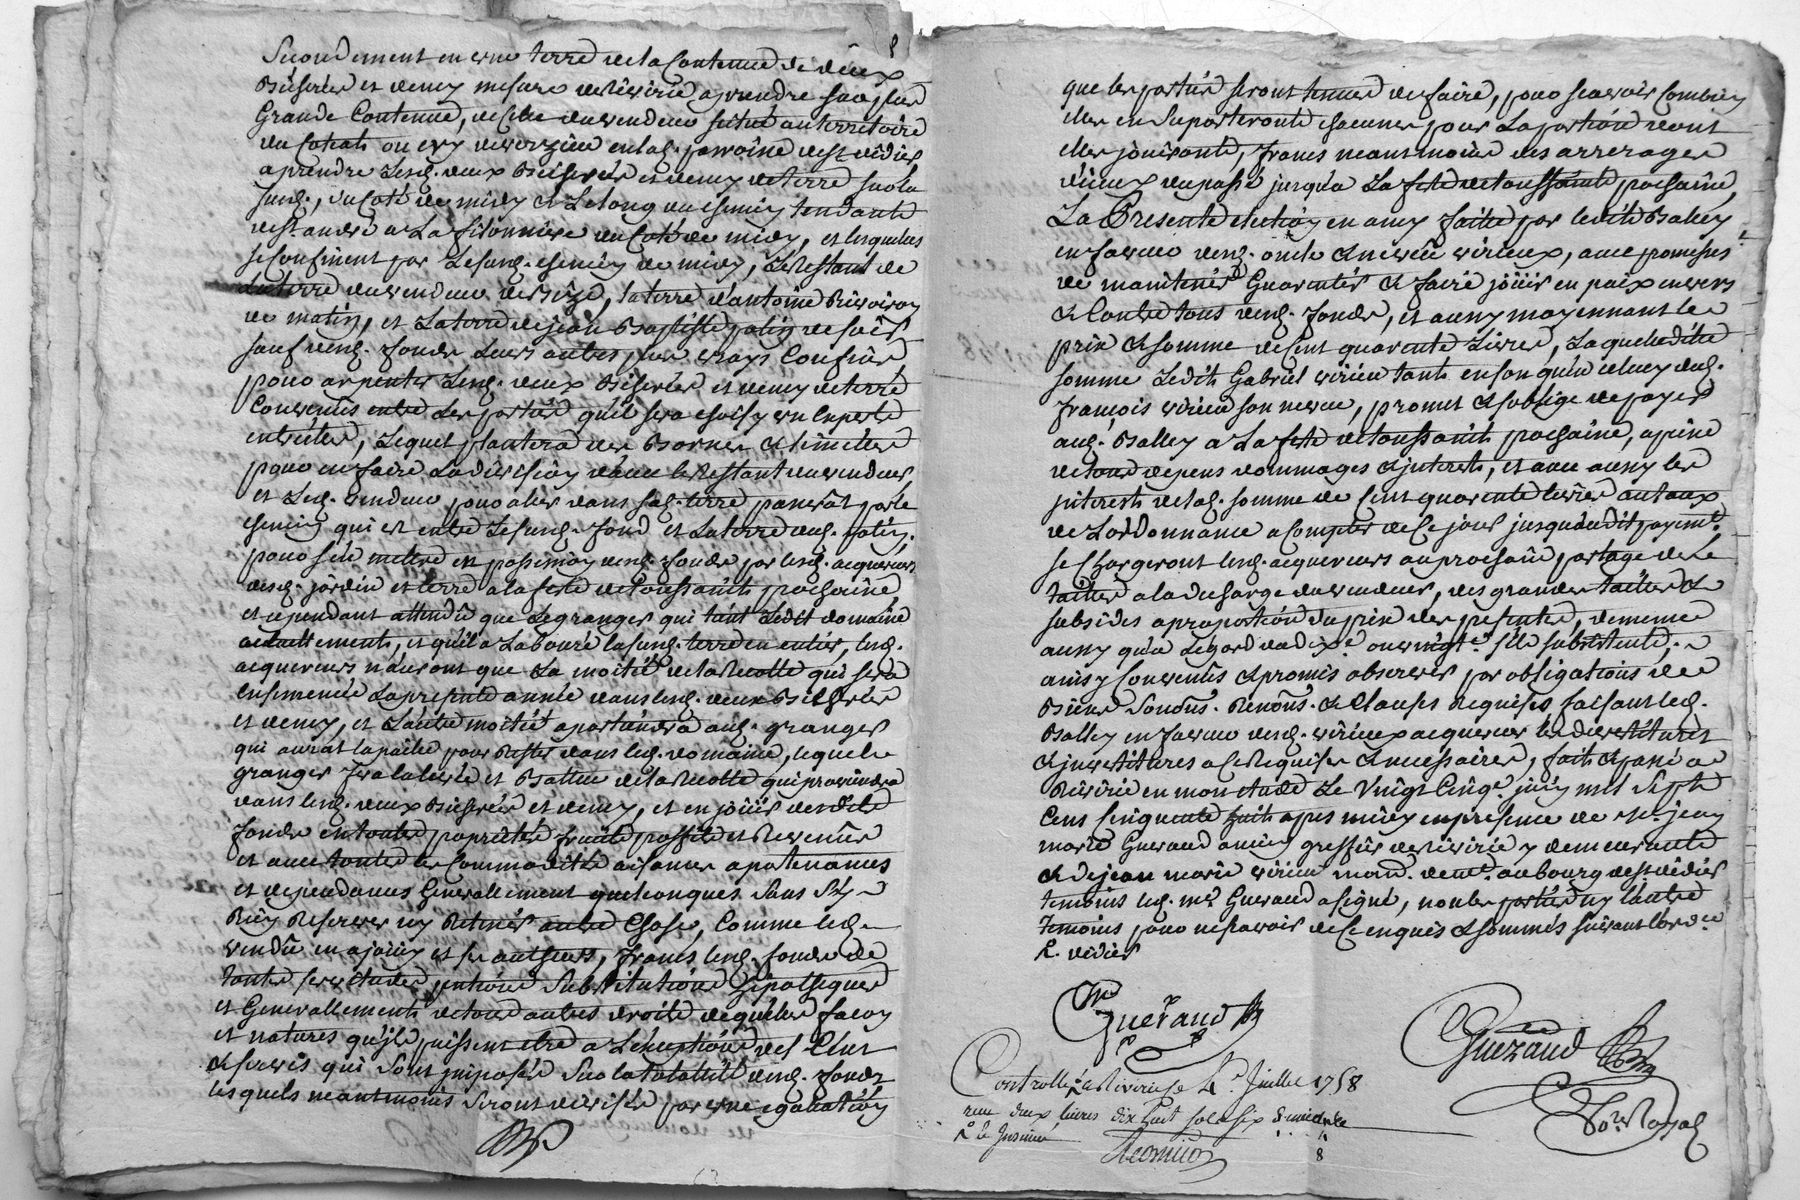 Secondement en une terre de la Contenue de deux
Bicherées et demy mesure de Rivirie a prendre sur plus
Grande Contenue, de celle du vendeur scitué au territoire
du ou en lad. parroisse de st didier
a prendre lesd. deux Bicherées et demy de terre sur la
susd., du Coté de midy et Le long du chemin tendant
de st andré a La du Coté de midy, et lesquelles
se Confinent par Le susd. chemin de midy, Le Restant de
La terre du vendeur de bize, la terre d'antoine
de matin, et La terre de jean Baptiste patin de soir
sauf desd. fonds Leurs autres plus vrays Confins
pour arpenter Lesd. deux Bicherées et demy de terre
Convenus entre Les parties qu'il sera choisy un Experts
entr'elles, Lequel plantera des Bornes et limittes
pour en faire La division d'avec le Restant du vendeur,
et Led. vendeur pour aller dans sad. terre passerat par le
chemin qui est entre Le susd. fond et La terre dud. patin.
pour s'en mettre en possession desd. fonds par lesd. acquereurs
desd. jardin et terre a la feste de toussaints prochaine,
et cependant attendû que Le granger qui tient Ledit domaine
actuellement, et qu'il a Labouré la susd. terre en entier, lesd.
acquereurs n'auront que La moitié de la Recolte qui sera
Ensemencée La presente année dans lesd. deux Bicherées
et demy, et L'autre moitié apartiendra aud. granger
qui aurat la paille pour Rester dans led. domaine, lequel
granger fera la levée et Batture de la Recolte qui proviendra
dans lesd. deux Bicherées et demy, et en jöüir desdits
fonds en toutes proprietés fruits proffits et Revenûs
et avec toutes les Commodités aisances apartenances
et dependances Generallement quelconques Sans S'y
Rien Reserver ny Retenir autre Chose, Comme led.
vendeur en a jöuy et ses autheurs, francs lesd. fonds de
toutes servitudes pentions Substitutions hipotheques
et Generallement de tous autres droits de quelles façon
et natures qu'ils puissent etre a L'exception des Cens
et servis qui Sont imposés Sur la totallité desd. fonds
lesquels neantmoins Seront divisés par une egallation
que les parties seront tenues de faire, pour scavoir Combien
elles en Suporteront chacunes pour La portion dont
elles jöuiront, francs neantmoins des arrerages
d'iceux du passé jusqu'a La feste de toussaints prochaine,
La Presente en ainsy faitte par ledit Balley
en faveur desd. oncle et neveu virieux, avec promesses
de maintenir Guarentir et faire jöüir en paix envers
et Contre tous desd. fonds, et ainsy moyennant le
prix et somme de Cent quarente Livres, Laquelle ditte
somme Ledit Gabriel virieu tant en son qu'en celuy dud.
françois virieu son neveu, promet et s'oblige de payer
aud. Balley a La feste de toussaints prochaine, a peine
de tous depens dommages et jnterests, et avec ainsy les
jnterests de lad. somme de Cent quarente livres au taux
de L'ordonnance a Compter de Ce jour jusqu'audit payemt.
se Chargeront lesd. acquereurs au prochain partage de Les
tailles a la decharge du vendeur, des grandes tailles et
subsides a proportion du prix des presentes, de meme
ainsy qu'a L'egard du dixe. ou vingte. s'ils subsistent.
ainsy Convenûs et promis observer par obligations de
Biens Soumis. Renons. et Clauses Requises faisant led.
Balley en faveur desd. virieux acquereurs les devestitures
et jnvestitures a ce Requises et necessaires, fait et passé a
Rivirie en mon etude Le Vingt Cinqe. juin mil Sept
Cens Cinquente huit apres midy en presence de sr. jean
marie Gueraud ancien greffier de Rivirie y demeurant
et de jean marie virieu mard. demt. au bourg de st didier
temoins led. mr. Gueraud a signé, non les parties ny l'autre
temoins pour ne scavoir de Ce enquis et sommés suivant l'ordce.
st. didier
Gueraud
Gueraud
Controllé a Riverie le 4e Juillet 1758
receu deux livres dix huit sols six deniers
8
Not Royal